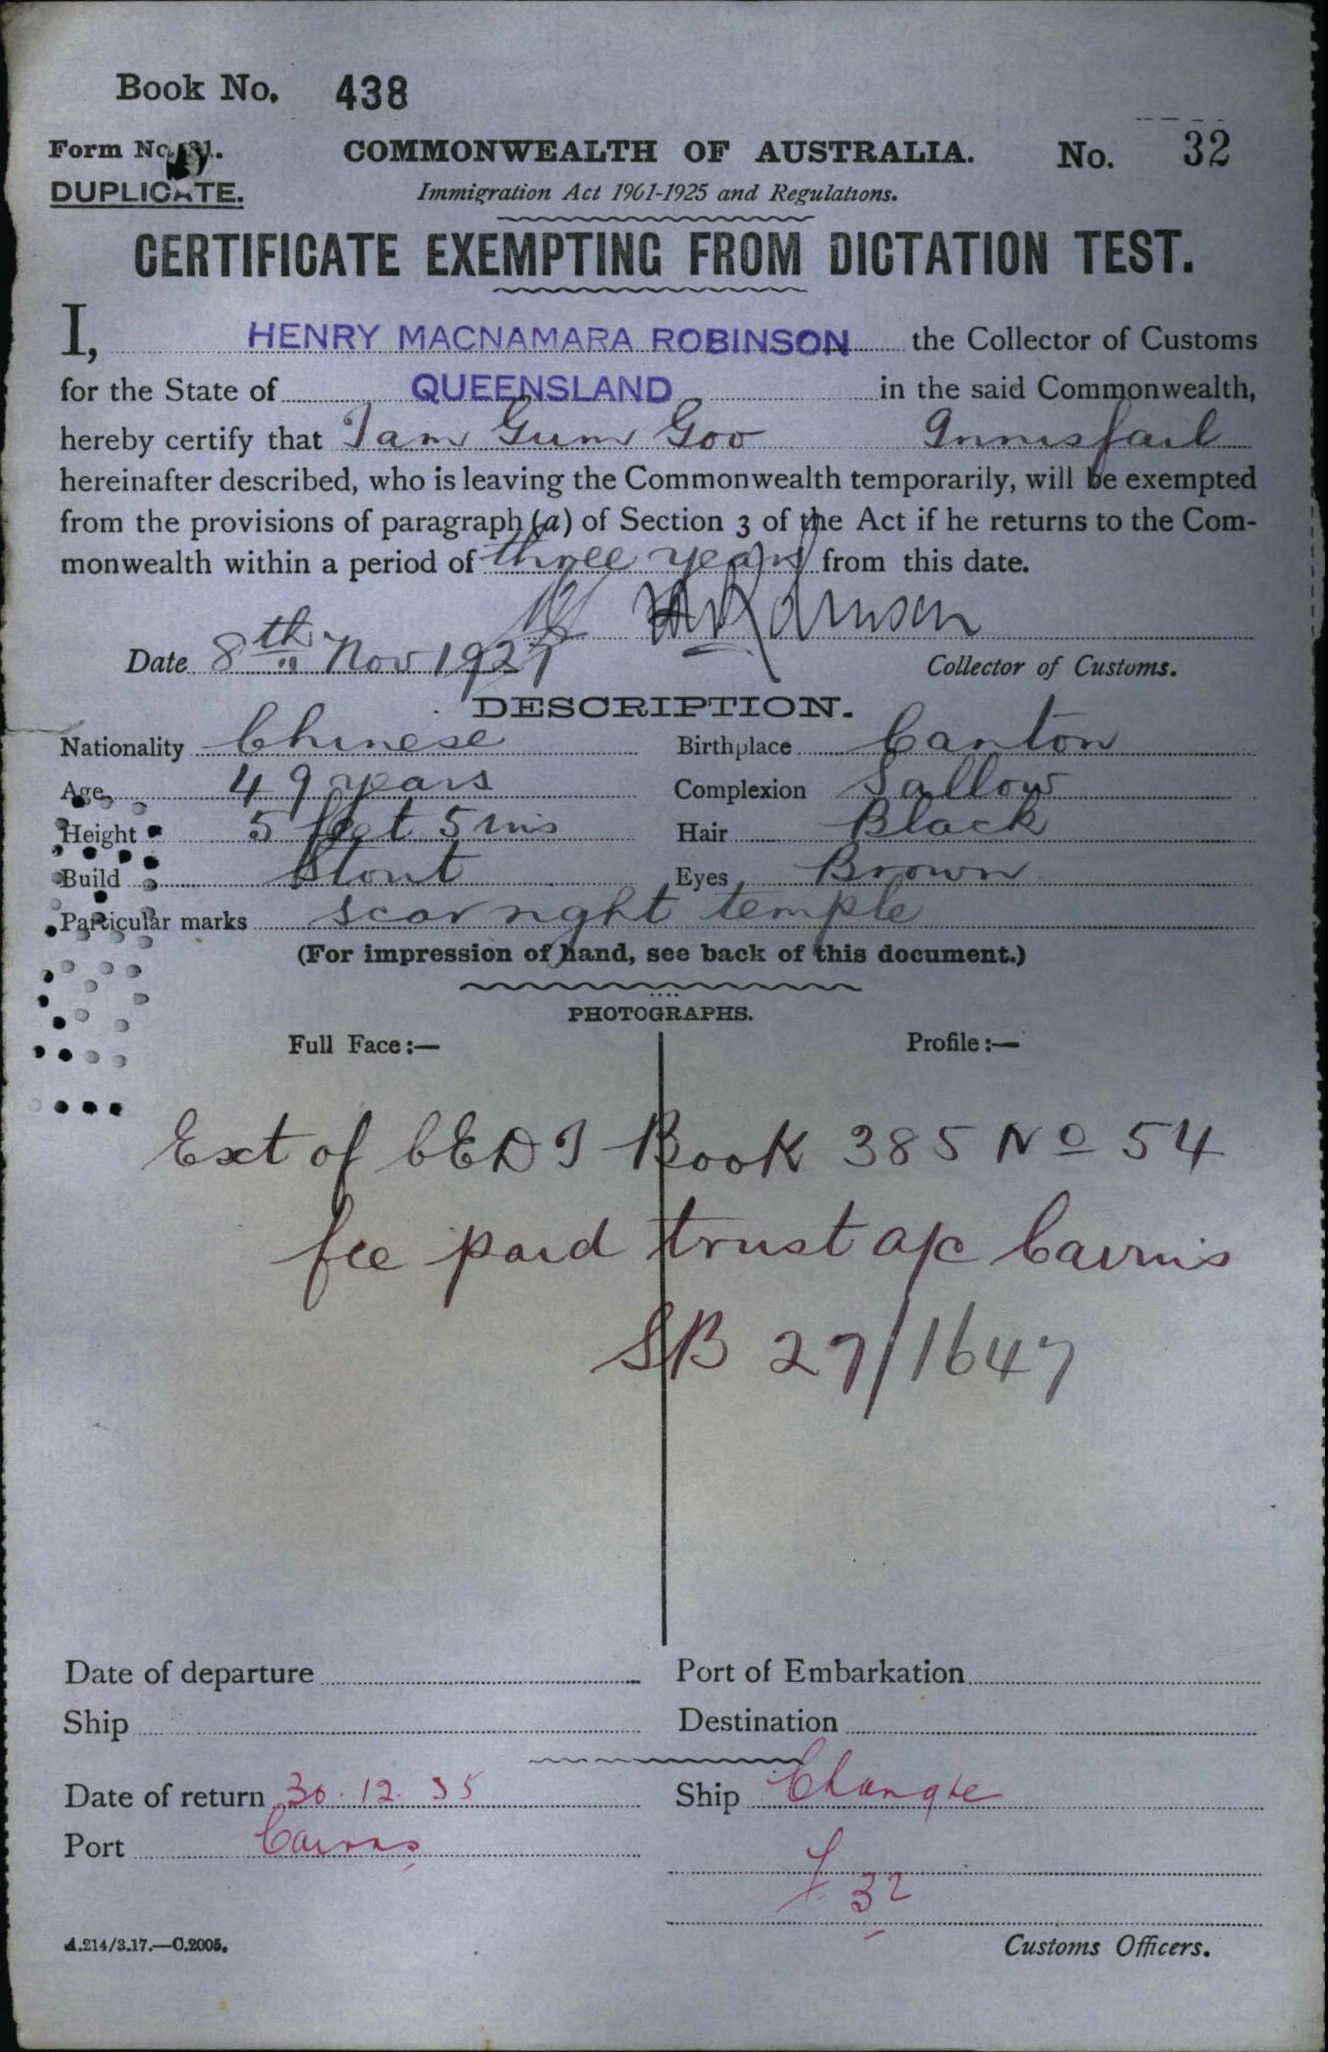 Book No. 438
Form No. 21.
DUPLICATE.
COMMONWEALTH OF AUSTRALIA.
No. 32
Immigration Act 1901-1925 and Regulations.
CERTIFICATE EXEMPTING FROM DICTATION TEST.
I, HENRY MACNAMARA ROBINSON the Collector of Customs
for the State of QUEENSLAND in the said Commonwealth,
hereby certify that Tam Gum Goo Innisfail
hereinafter described, who is leaving the Commonwealth temporarily, will be exempted
from the provisions of paragraph (a) of Section 3 of the Act if he returns to the Com-
monwealth within a period of three years from this date.
HMRobinson
Date 8th Nov 1927 Collector of Customs.
DESCRIPTION.
Nationality Chinese Birthplace Canton
Age 49 years Complexion Sallow
Height 5 feet 5 ins Hair Black
Build Stout Eyes Brown
Particular marks scar right temple
(For impression of hand, see back of this document.)
PHOTOGRAPHS.
Full Face:— Profile:—
Ext of CEDT Book 385 No 54
fee paid trust a/c Cairns
SB 27/1647
Date of departure Port of Embarkation
Ship Destination
Date of return 30.12.35 Ship Changte
Port Cairns
32
A.214/3.17.—C.2005. Customs Officers.